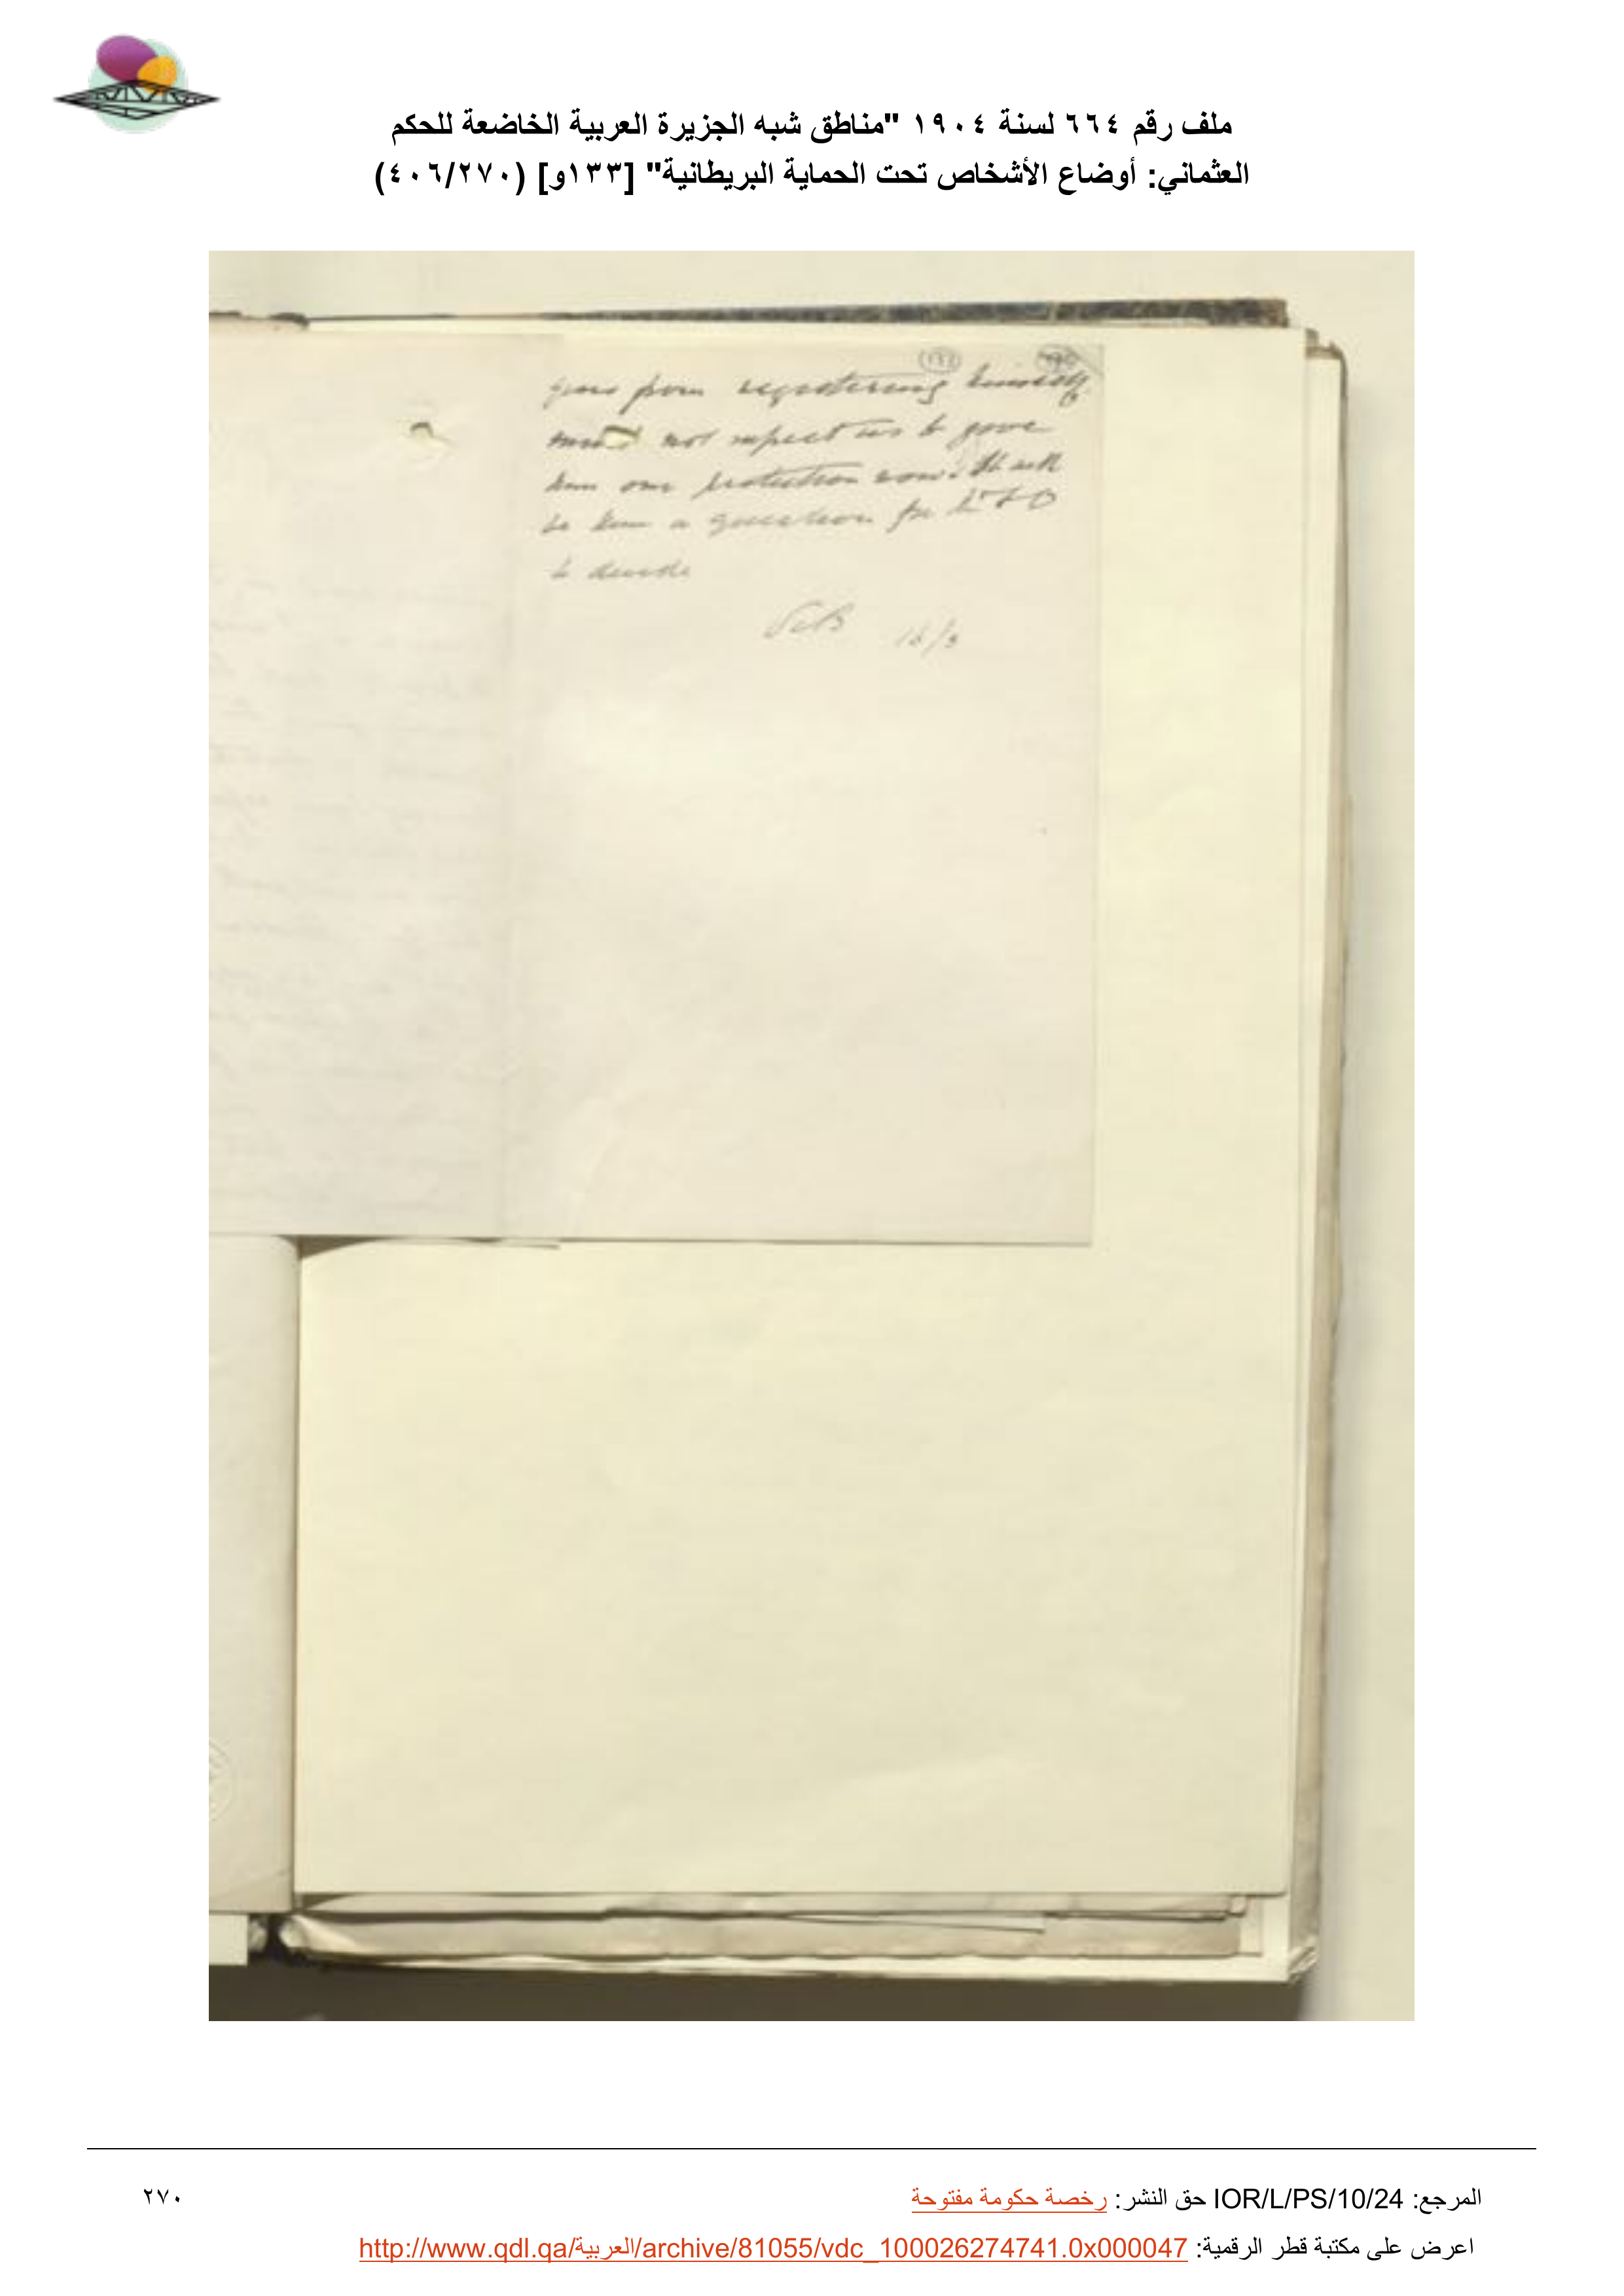 ملف رقم ٦٦٤ لسنة ١٩٠٤ "مناطق شبه الجزيرة العربية الخاضعة للحكم
العثماني: أوضاع الأشخاص تحت الحماية البريطانية" [١٣٣و] (٤٠٦/٢٧٠)
133
years from registering himself
must not expect us to give
him our protection now.
be him a question for the FO
to decide
16/3
المرجع: IOR/L/PS/10/24 حق النشر: رخصة حكومة مفتوحة
٢٧٠
اعرض على مكتبة قطر الرقمية: http://www.qdl.qa/العربية/archive/81055/vdc_100026274741.0x000047